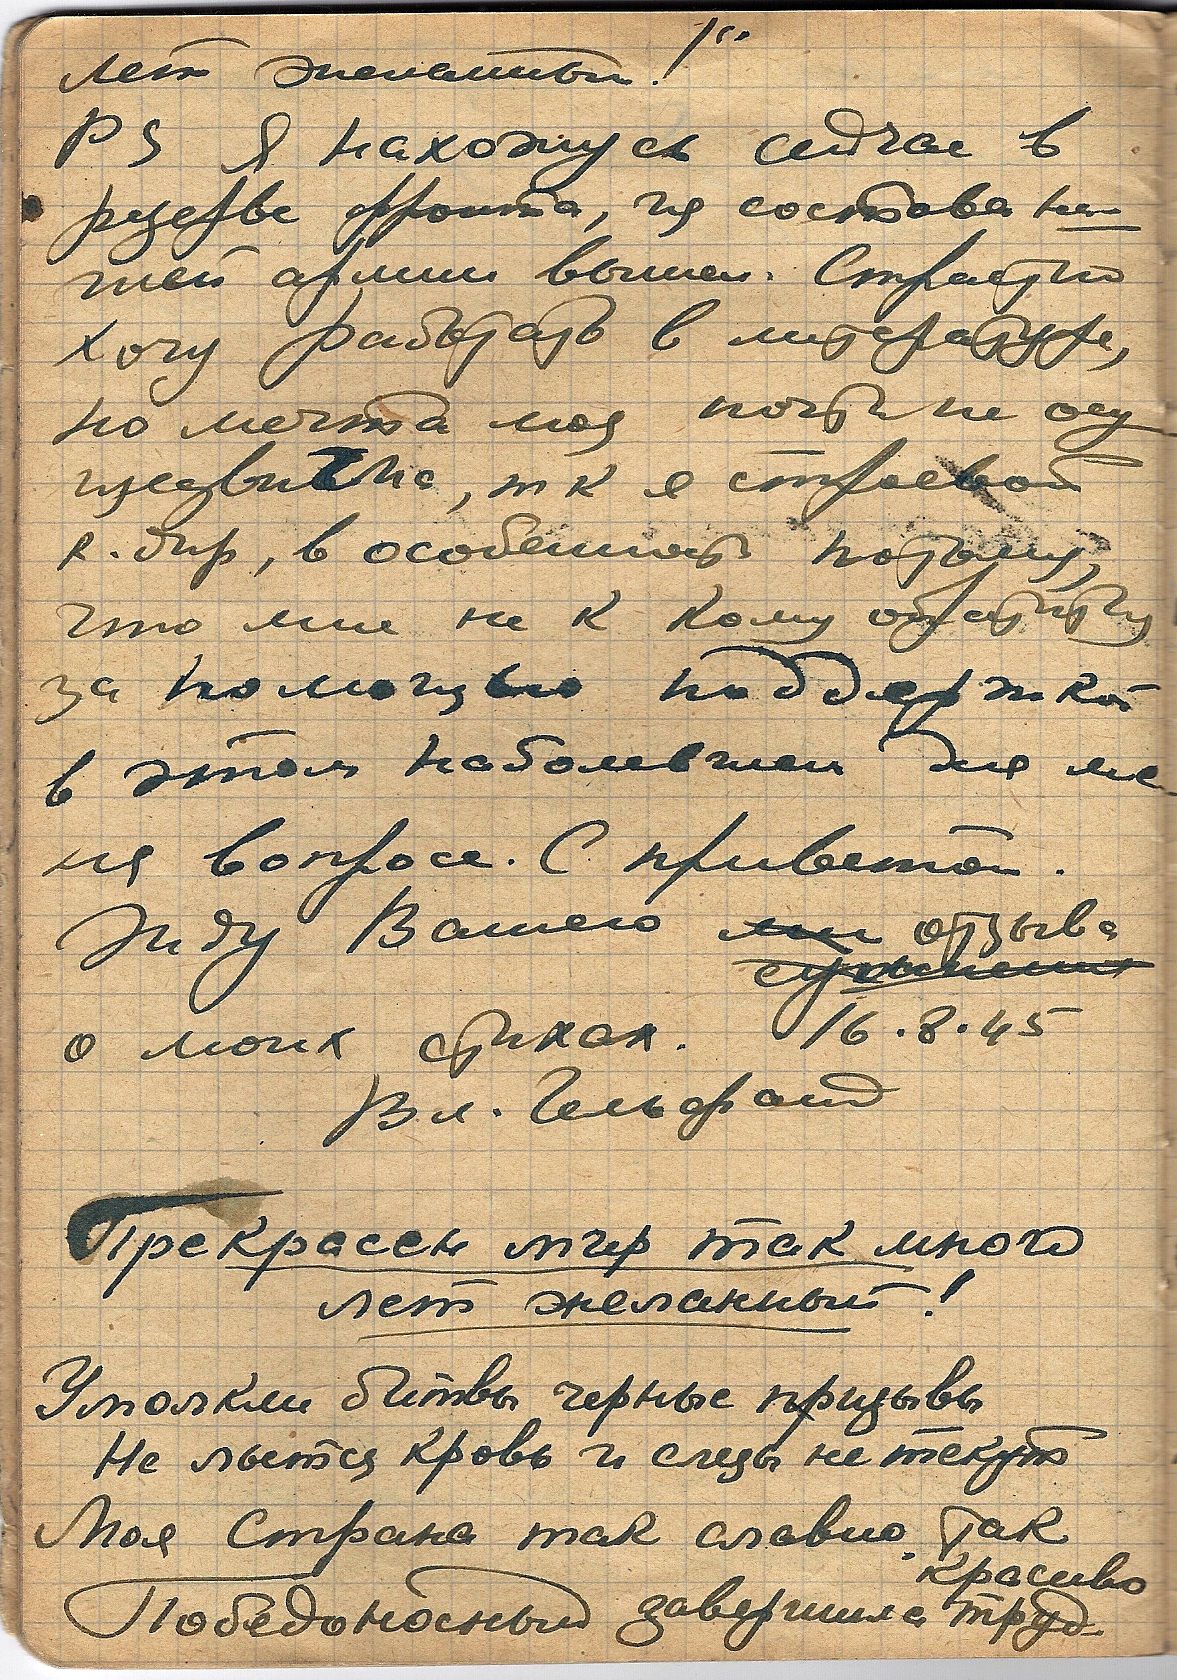 лет желанный!"
PS Я нахожусь сейчас в
резерве фронта, из состава на-
шей армии вышел. Страстно
хочу работать в литературе,
но мечта моя почти не осу
ществима, т к я строевой
к.дир, в особенности потому,
что мне не к кому обратиться
за помощью поддержкой
в этом наболевшем для ме
ня вопросе. С приветом.
Жду Вашего отзыва
о моих стихах. 16.8.45
Вл. Гельфанд
Прекрасен мир так много
лет желанный!
Умолкли битвы черные призывы
Не льется кровь и слезы не текут
Моя Страна так славно, так
красиво
Победоносный завершила труд.